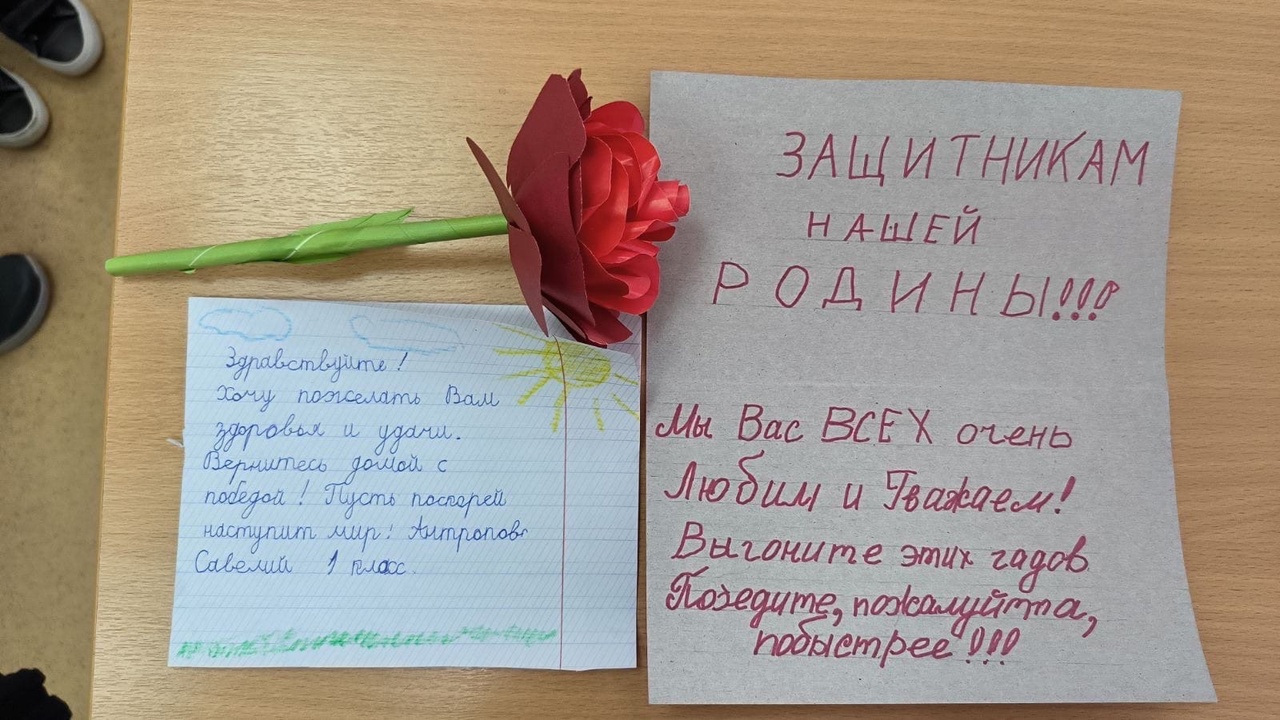 Здравствуйте!
Хочу пожелать Вам
здоровья и удачи.
Вернитесь домой с
победой! Пусть поскорей
наступит мир! Антропов
Савелий 1 класс.
ЗАЩИТНИКАМ
НАШЕЙ
РОДИНЫ!!!
Мы Вас ВСЕХ очень
Любим и Уважаем!
Выгоните этих гадов.
Победите, пожалуйста,
побыстрее!!!